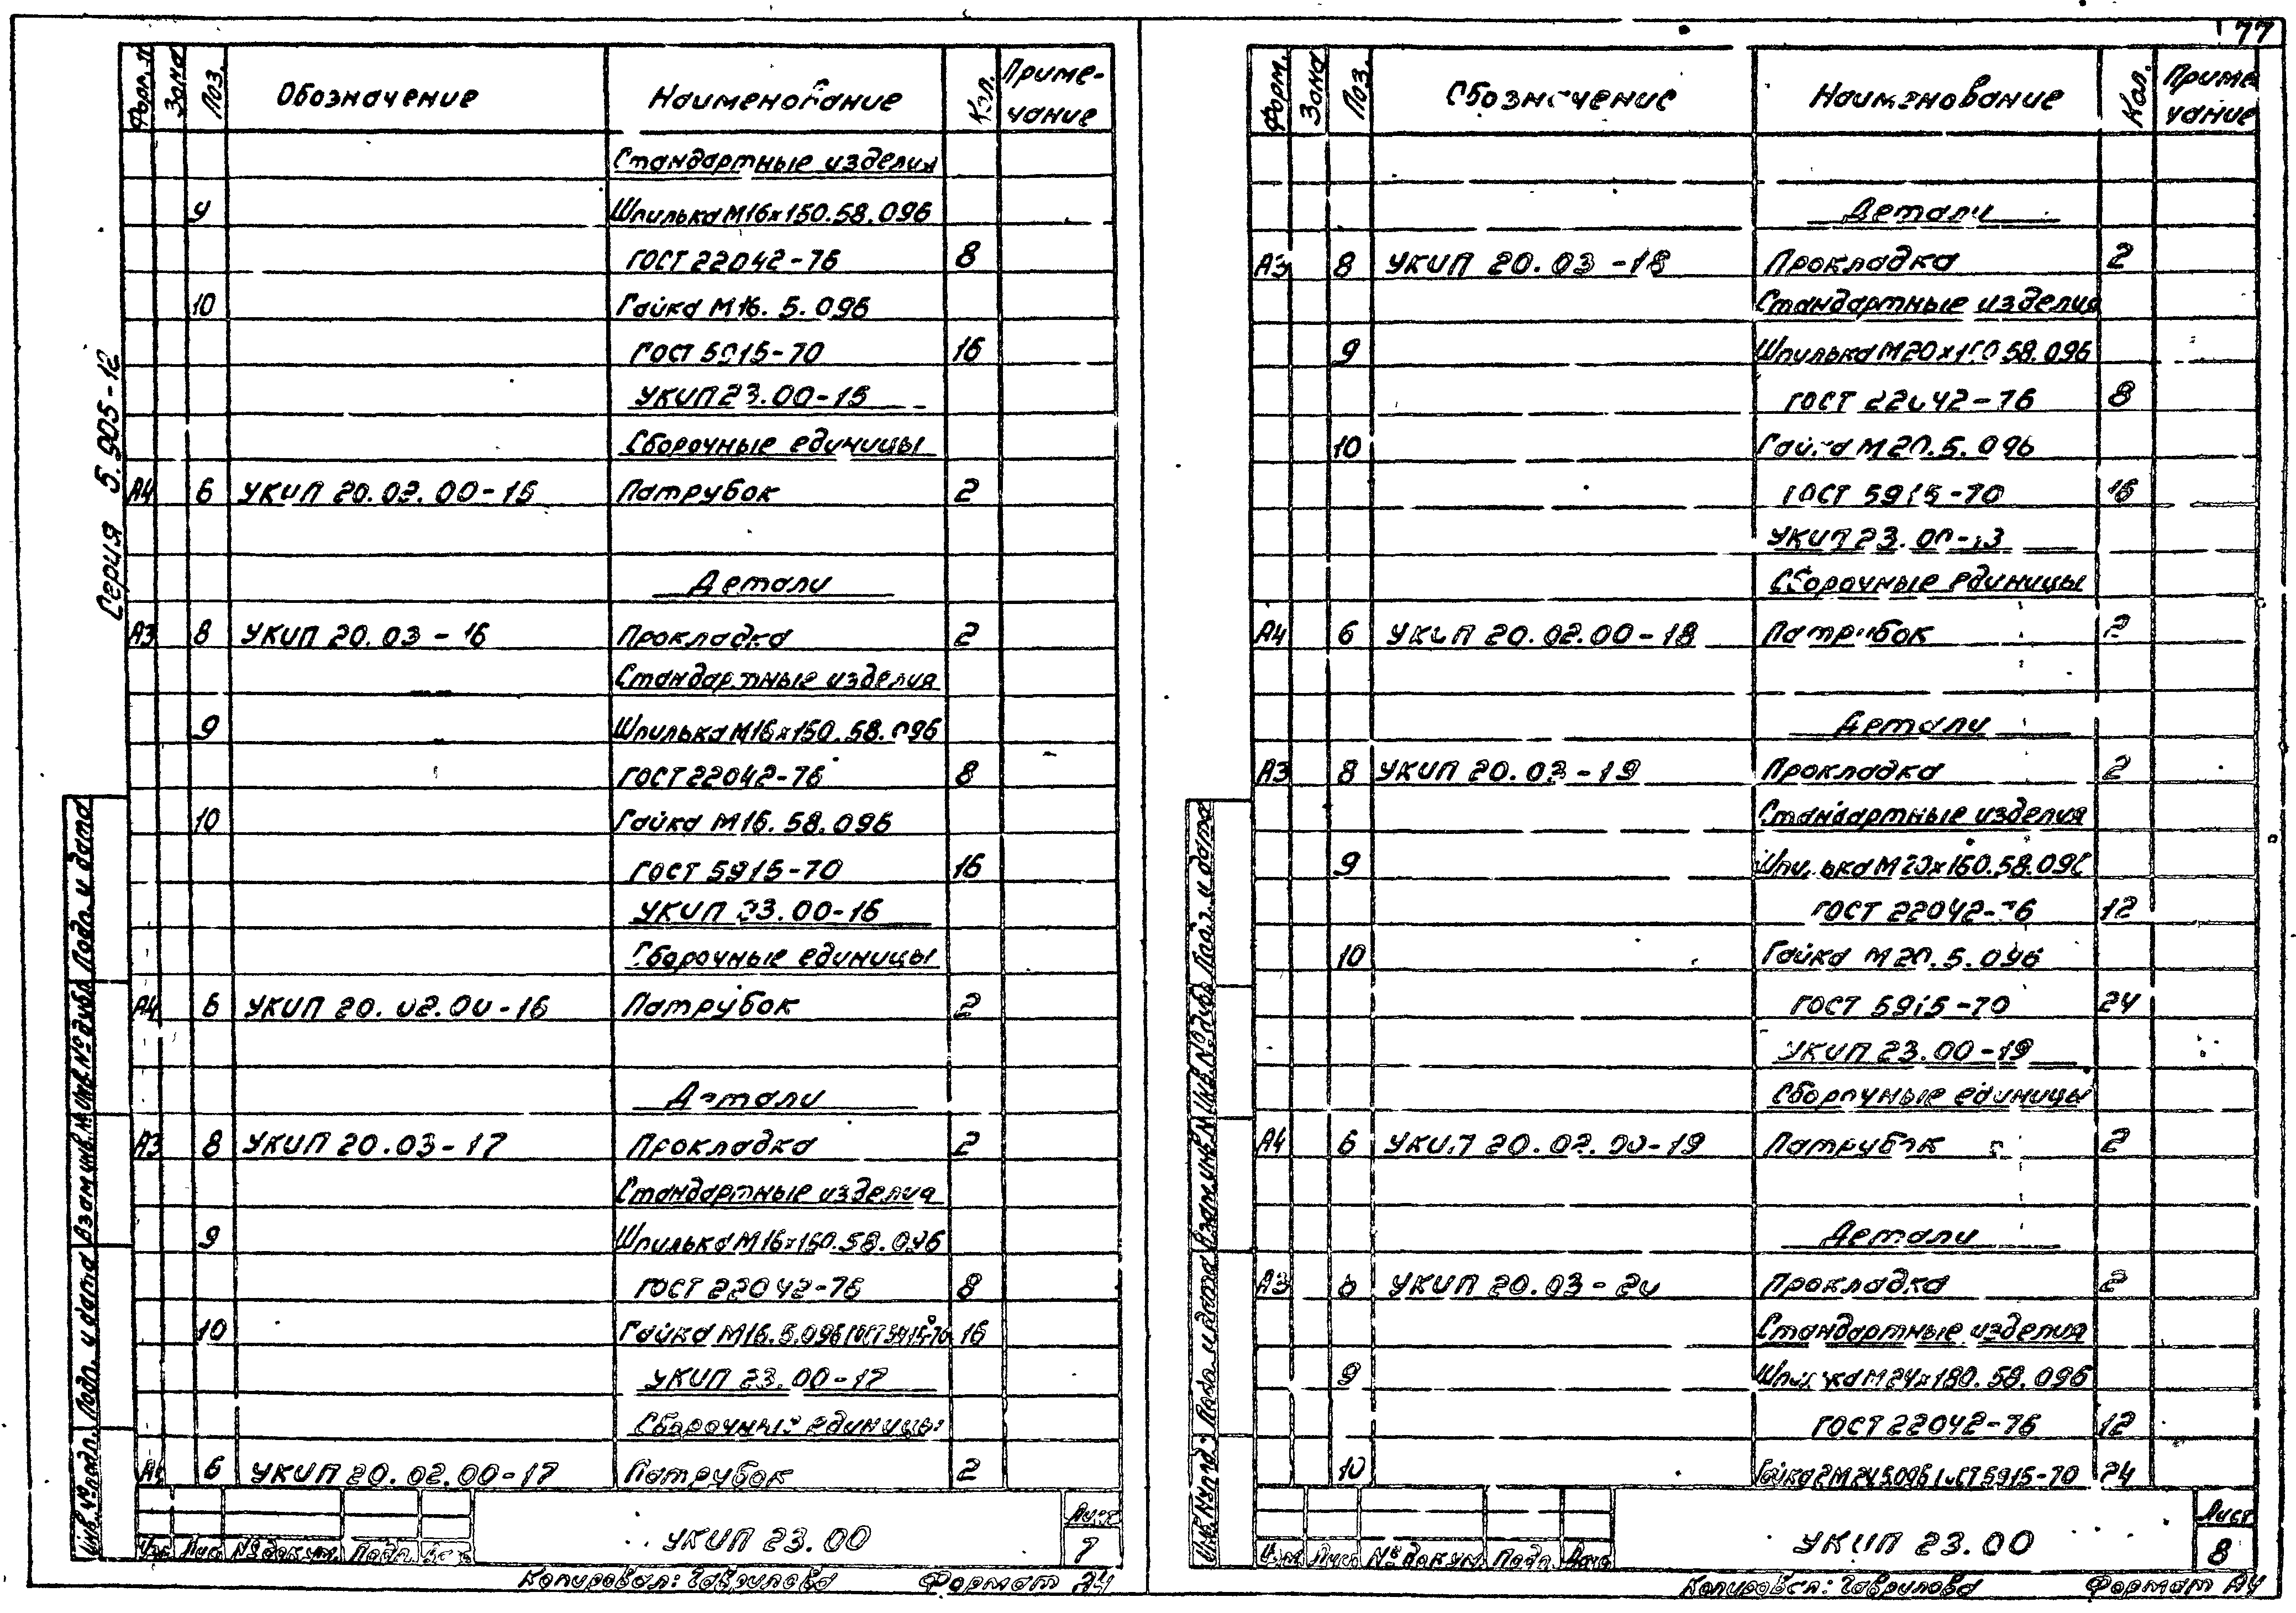 77
Серия 5.905-12
Форм. Зона Поз. Обозначение Наименование Кол. Приме-
чание
Стандартные изделия
9 Шпилька М16х150.58.096
ГОСТ 22042-76 8
10 Гайка М16.5.096
ГОСТ 5915-70 16
УКИП 23.00-15
Сборочные единицы
А4 6 УКИП 20.02.00-15 Патрубок 2
Детали
А3 8 УКИП 20.03-16 Прокладка 2
Стандартные изделия
9 Шпилька М16х150.58.096
ГОСТ 22042-76 8
10 Гайка М16.58.096
ГОСТ 5915-70 16
УКИП 23.00-16
Сборочные единицы
А4 6 УКИП 20.02.00-16 Патрубок 2
Детали
А3 8 УКИП 20.03-17 Прокладка 2
Стандартные изделия
9 Шпилька М16х150.58.096
ГОСТ 22042-76 8
10 Гайка М16.5.096 ГОСТ 5915-70 16
УКИП 23.00-17
Сборочные единицы
А4 6 УКИП 20.02.00-17 Патрубок 2
Инв.№подл. Подп. и дата Взам.инв.№ Инв.№дубл. Подп. и дата
Изм Лист №докум. Подп. Дата
УКИП 23.00
Лист
7
Копировал: Гаврилова Формат А4
Форм. Зона Поз. Обозначение Наименование Кол. Приме
чание
Детали
А3 8 УКИП 20.03-18 Прокладка 2
Стандартные изделия
9 Шпилька М20х160.58.096
ГОСТ 22042-76 8
10 Гайка М20.5.096
ГОСТ 5915-70 16
УКИП 23.00-
Сборочные единицы
А4 6 УКИП 20.02.00-18 Патрубок 2
Детали
А3 8 УКИП 20.03-19 Прокладка 2
Стандартные изделия
9 Шпилька М20х160.58.096
ГОСТ 22042-76 12
10 Гайка М20.5.096
ГОСТ 5915-70 24
УКИП 23.00-19
Сборочные единицы
А4 6 УКИП 20.02.00-19 Патрубок 2
Детали
А3 8 УКИП 20.03-20 Прокладка 2
Стандартные изделия
9 Шпилька М24х180.58.096
ГОСТ 22042-76 12
10 Гайка 2М24.5.096 ГОСТ 5915-70 24
Инв.№подл. Подп. и дата Взам.инв.№ Инв.№дубл. Подп. и дата
Изм Лист №докум. Подп. Дата
УКИП 23.00
Лист
8
Копировал: Гаврилова Формат А4